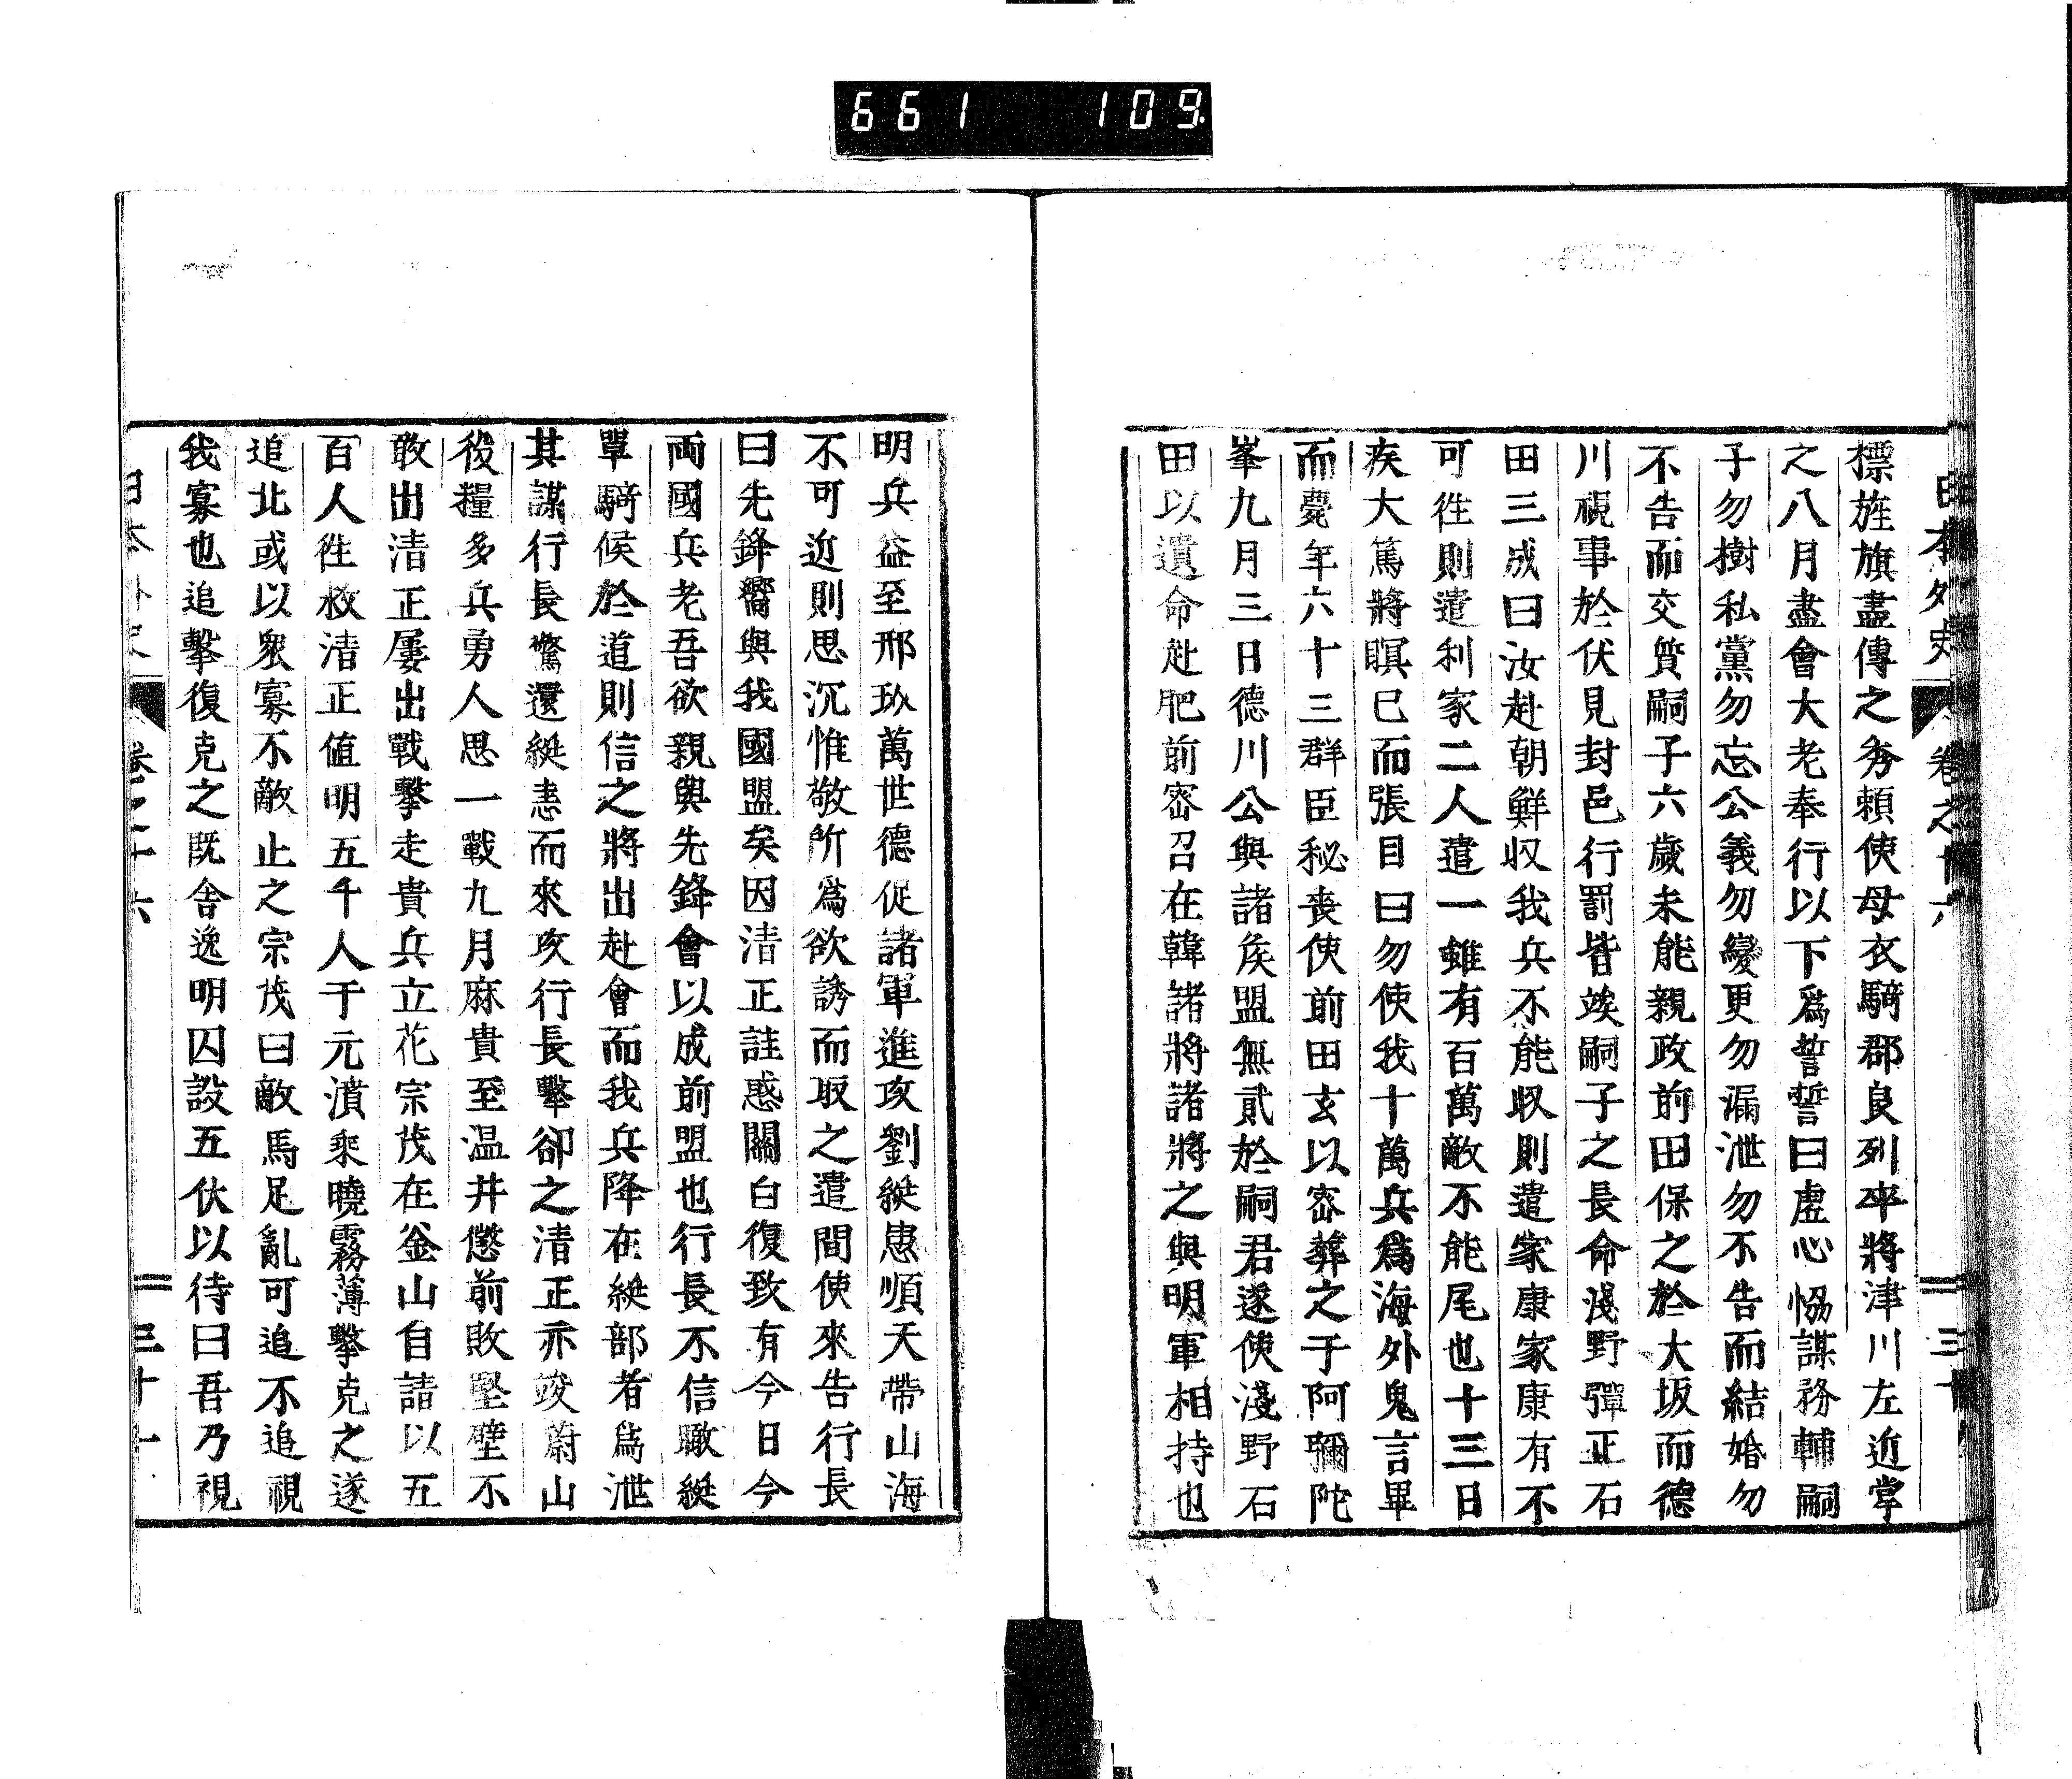 661 109
日本外史 卷之十六 三十
標旌旗盡傳之秀頼使母衣騎郡良列卒將津川左近掌
之八月盡會大老奉行以下爲誓誓曰虛心恊謀務輔嗣
子勿樹私黨勿忘公義勿變更勿漏泄勿不告而結婚勿
不告而交質嗣子六歲未能親政前田保之於大坂而德
川視事於伏見封邑行罰皆竢嗣子之長命淺野彈正石
田三成曰汝赴朝鮮収我兵不能収則遣家康家康有不
可徃則遣利家二人遣一雖有百萬敵不能尾也十三日
疾大篤將瞑已而張目曰勿使我十萬兵爲海外鬼言畢
而薨年六十三群臣秘喪使前田玄以密葬之于阿彌陀
峯九月三日德川公與諸矦盟無貳於嗣君遂使淺野石
田以遺命赴肥前密召在韓諸將諸將之與明軍相持也
明兵益至邢玠萬世德促諸軍進攻劉綎患順天帶山海
不可近則思沉惟敬所爲欲誘而取之遣間使來告行長
曰先鋒嚮與我國盟矣因清正註惑關白復致有今日今
両國兵老吾欲親與先鋒會以成前盟也行長不信瞰綎
單騎候於道則信之將出赴會而我兵降在綎部者爲泄
其謀行長驚還綎恚而來攻行長擊卻之清正亦竣蔚山
役糧多兵勇人思一戰九月麻貴至温井懲前敗堅壁不
敢出清正屢出戰擊走貴兵立花宗茂在釜山自請以五
百人徃救清正値明五千人于元濆乘曉霧薄擊克之遂
追北或以衆寡不敵止之宗茂曰敵馬足亂可追不追視
我寡也追擊復克之既舍逸明囚設五伏以待曰吾乃視
日本外史 卷之十六 三十一